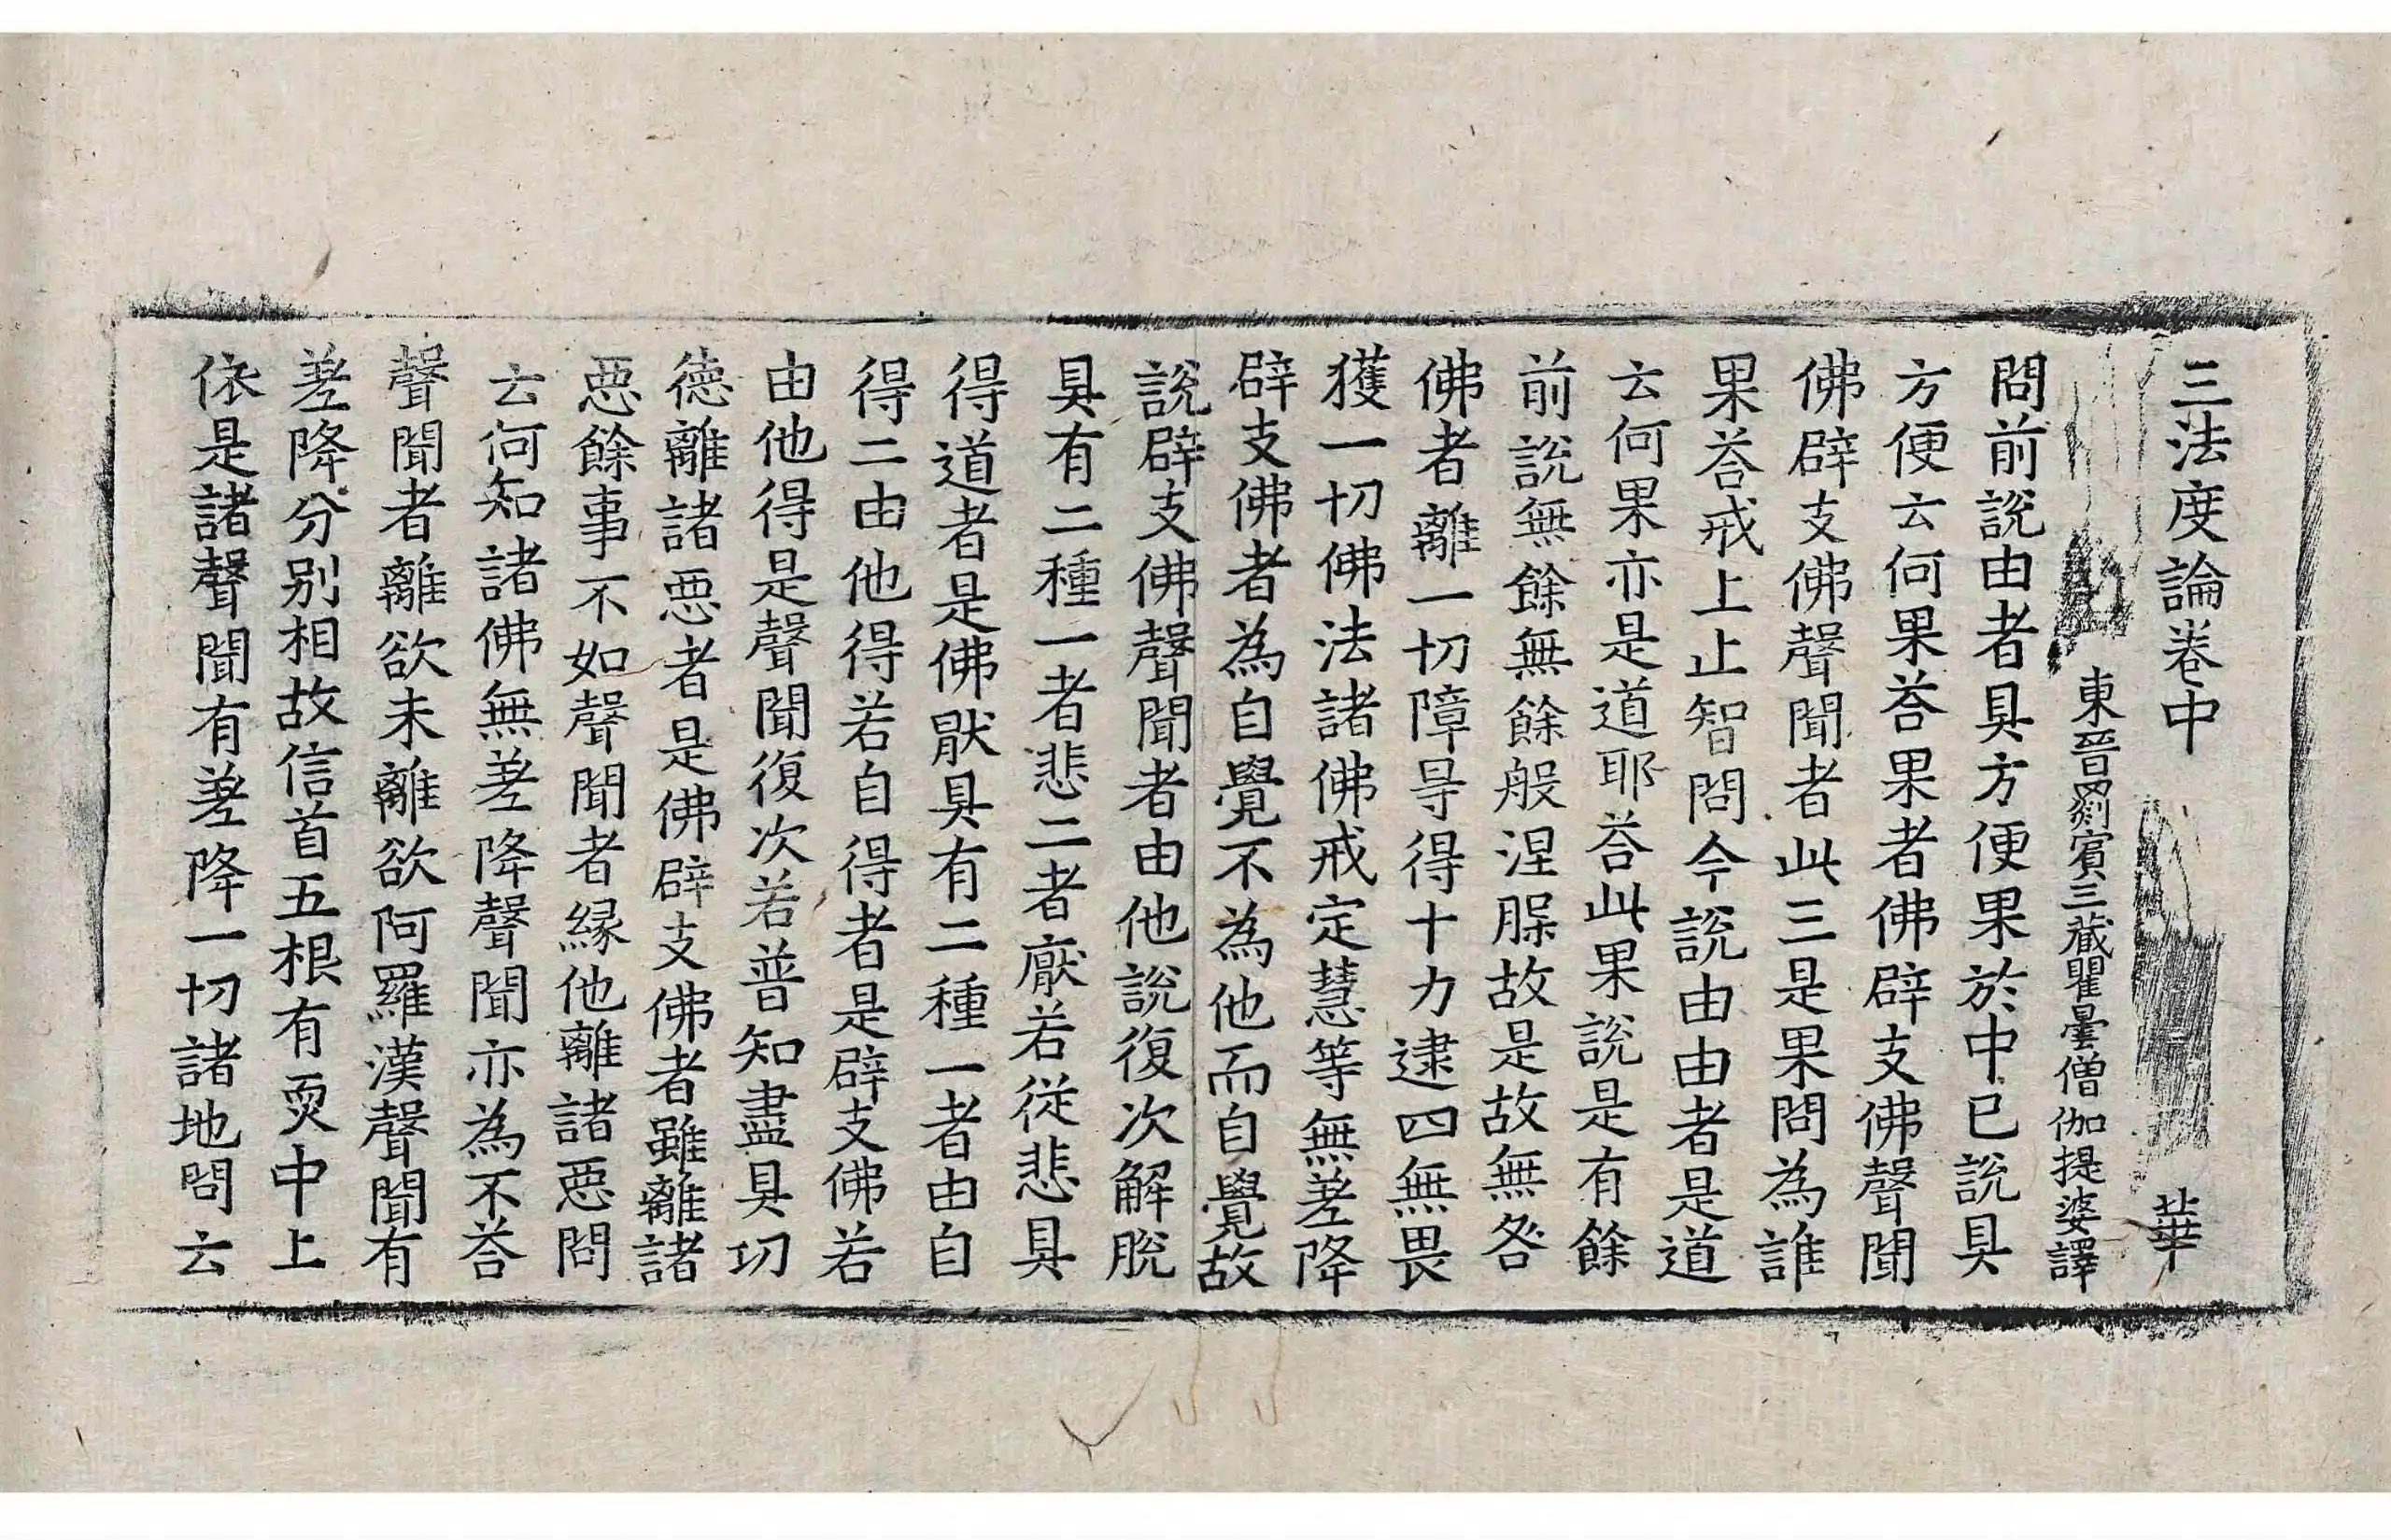 三法度論卷中　華
東晉罽賓三藏瞿曇僧伽提婆譯
問前說由者具方便果於中已說具
方便云何果荅果者佛辟支佛聲聞
佛辟支佛聲聞者此三是果問為誰
果荅戒上止智問今說由由者是道
云何果亦是道耶荅此果說是有餘
前說無餘無餘般涅槃故是故無咎
佛者離一切障㝵得十力逮四無畏
獲一切佛法諸佛戒定慧等無差降
辟支佛者為自覺不為他而自覺故
說辟支佛聲聞者由他說復次解脫
具有二種一者悲二者厭若從悲具
得道者是佛猒具有二種一者由自
得二由他得若自得者是辟支佛若
由他得是聲聞復次若普知盡具功
德離諸惡者是佛辟支佛者雖離諸
惡餘事不如聲聞者緣他離諸惡問
云何知諸佛無差降聲聞亦為不荅
聲聞者離欲未離欲阿羅漢聲聞有
差降分別相故信首五根有耎中上
依是諸聲聞有差降一切諸地問云